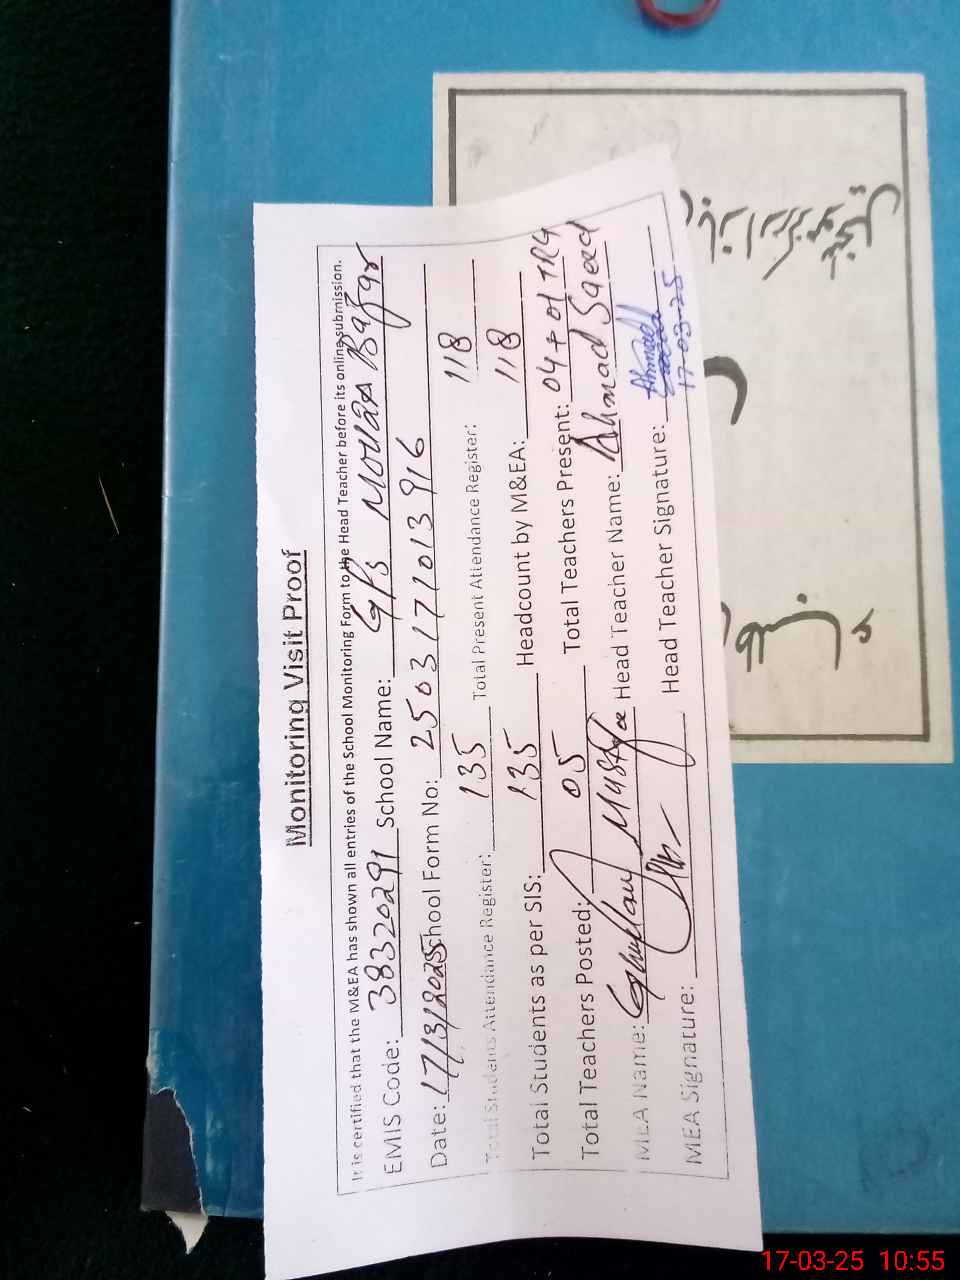 Monitoring Visit Proof
It is certified that the M&EA has shown all entries of the School Monitoring Form to the Head Teacher before its online submission.
EMIS Code: 38320291 School Name: GPS
Date: 17/3/2025 School Form No: 2503171013916
Total Students Attendance Register: 135 Total Present Attendance Register: 118
Total Students as per SIS: 135 Headcount by M&EA: 118
Total Teachers Posted: 05 Total Teachers Present: 04 + 01
MEA Name: Ghulam Mustafa Head Teacher Name: Ahmad Saeed
MEA Signature: Head Teacher Signature: Ahmad
17-03-25
17-03-25 10:55